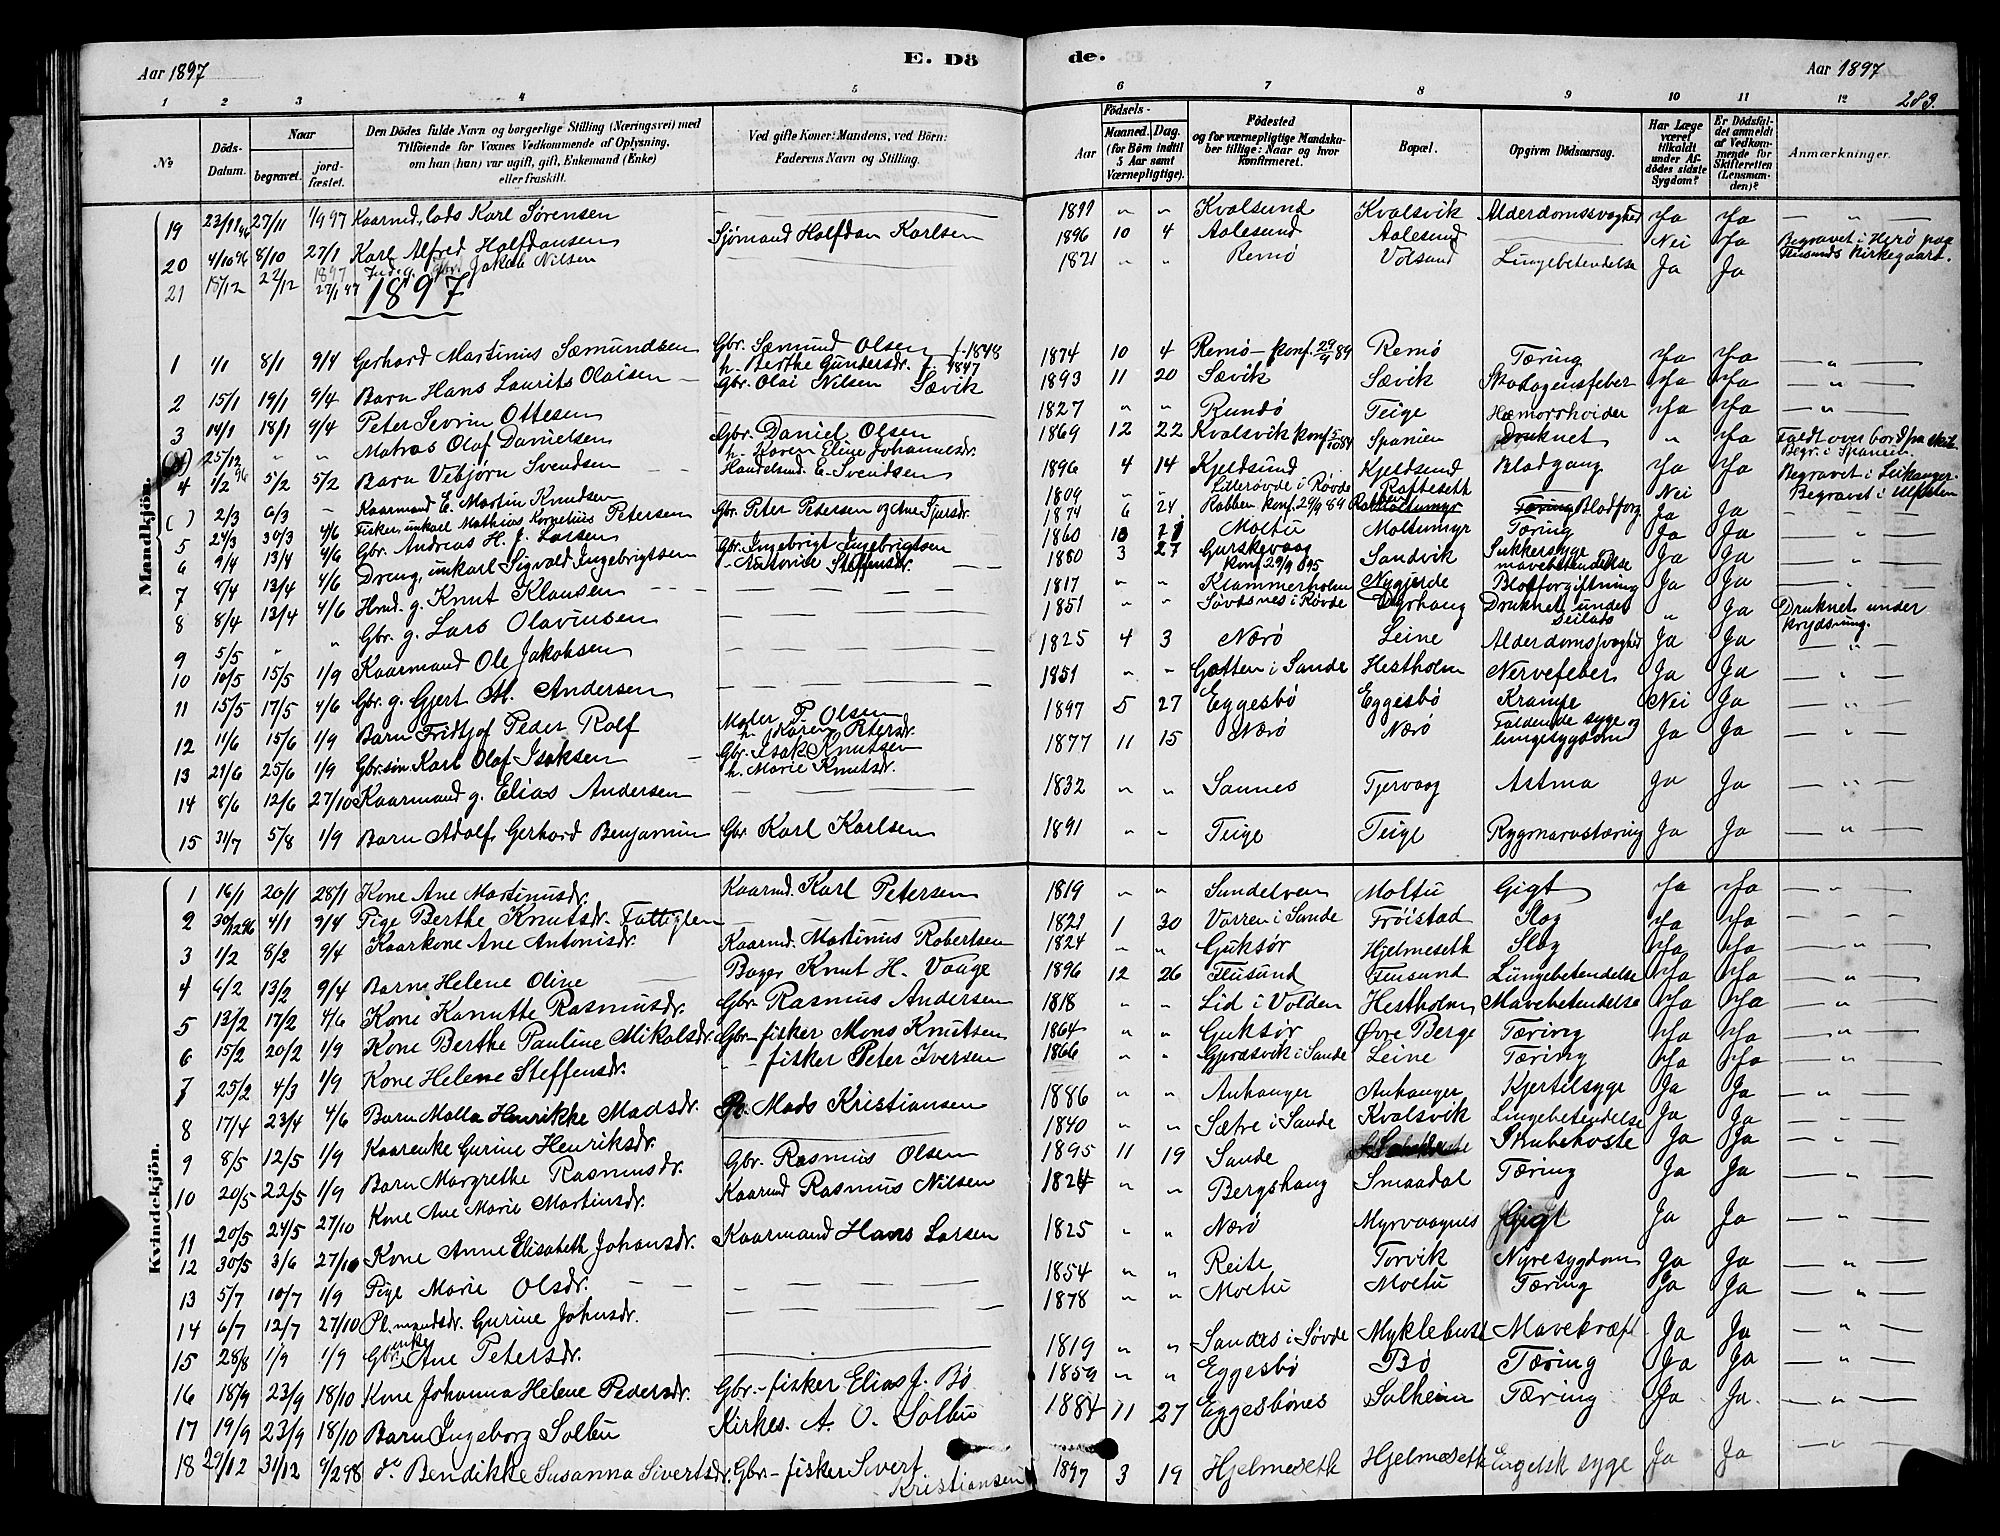 Aar 1897
E. Dö
de.
Aar 1897
283.
1 2 3 4 5
6 7 8 9 10 11 12
No
Döds-Datum.
Naar
begravet.
jord-fæstet.
Den Dödes fulde Navn og borgerlige Stilling (Næringsvei) med
Tilföiende for Voxnes Vedkommende af Oplysning,
om han (hun) var ugift, gift, Enkemand (Enke)
eller fraskilt.
Ved gifte Koner: Mandens, ved Börn:
Faderens Navn og Stilling.
Födsels-
Aar
Maaned. Dag.
(for Börn indtil
5 Aar samt
Værnepligtige).
Födested
og for værnepligtige Mandska-
ber tillige: Naar og hvor
Konfirmeret.
Bopæl.
Opgiven Dödsaarsag.
Har Læge
været
tilkaldt
under Af-
dödes sidste
Sygdom?
Er Dödsfal-
det anmeldt
af Vedkom-
mende for
Skifteretten
(Lensman-
den)?
Anmærkninger.
Mandkjön.
19 23/11 96 27/11 1/9 97 Kaarmd. Lads Karl Sørensen 1811 " " Kvalsund Kvalsvik Alderdomssvaghed Ja Ja "
20 4/10 96 8/10 27/1 Karl Alfred Halfdansen Sjömand Halfdan Karlsen 1896 10 4 Aalesund Aalesund Nei Ja Begravet i Herö paa Flusunds Kirkegaard.
21 15/12 22/12 1897 27/1 97 Jakob Nilsen 1821 Remö Volsund Lungebetendelse Ja Ja
1897
1 1/1 8/1 9/4 Gerhard Martinus Sæmundsen Gbr. Sæmund Olsen f. 1848 h. Berthe Gundersdr. f. 1847 1874 10 4 Remö konf. 29/9 89 Remö Tæring Ja Ja "
2 15/1 19/1 9/4 Barn Hans Laurits Olaisen Gbr. Olai Nilsen Sævik 1893 11 20 Sævik Sævik Skarlagensfeber Ja Ja "
3 14/1 18/1 9/4 Peter Sevrin Ottesen 1827 " " Rundö Teige Hæmorrhoider Ja Ja "
25/12 " " Matros Olaf Danielsen Gbr. Daniel Olsen h. Karen Eline Johannesdr. 1869 12 22 Kvalsvik konf. 5/10 84 Spanien Druknet " Ja Faldt over bord fra skib. Begr. i Spanien.
4 1/2 96 5/2 5/2 Barn Vebjørn Svendsen Handelsmd. E. Svendsen 1896 4 14 Kjeldsund Kjeldsund Blodgang Ja Ja Begravet i Leikanger
( ) 2/3 6/3 - Kaarmand E. Martin Knudsen 1809 " " Lillerövde i Rövde Ratteseth Nei Begravet i Ulfsten
5 24/3 30/3 4/6 Fisker, unkarl Mathias Kornelius Petersen Gbr. Peter Petersen og Ane Sjursdr. 1874 6 24 Rabben konf. 29/9 89 Blodforg Ja Ja "
6 9/4 13/4 4/6 Gbr. Andreas H. J. Larsen 1860 Moltu Moltumyr Tæring Ja Ja "
7 8/4 13/4 4/6 Dreng, unkarl Sigvald Ingebrigtsen Gbr. Ingebrigt Ingebrigtsen - Antonie Steffensdr. 1880 3 27 Gurskevaag konf. 29/9 95 Sandvik Sukkersyge mavebetendelse Ja Ja "
8 8/4 13/4 4/6 Hmd. g. Knut Klausen 1817 " " Klammerholm Nygjerde Blodforgiftning Ja Ja "
9 5/5 " " Gbr. g. Lars Olavinsen 1851 " " Sövdsnes i Rövde Dyrhaug Druknet under seilads " Ja Druknet under krydsning.
10 10/5 15/5 1/9 Kaarmand Ole Jakobsen 1825 4 3 Nærö Leine Alderdomssvaghed Ja Ja "
11 15/5 17/5 4/6 Gbr. g. Gjert M. Andersen 1851 " " Gotten i Sande Hestholm Nervefeber Ja Ja
12 11/6 15/6 1/9 Barn Fridtjof Peder Rolf Maler P. Olsen h. Karen Petersdr. 1897 5 27 Eggesbö Eggesbö Krampe Nei Ja "
13 21/6 25/6 1/9 Gbr. sön Karl Olaf Isaksen Gbr. Isak Knutsen h. Marie Knutsdr. 1877 11 15 Nærö Nærö Faldende syge og lungesygdom Ja Ja "
14 8/6 12/6 27/10 Kaarmand g. Elias Andersen 1832 " " Sannes Tjervaag Astma Ja Ja "
15 31/7 5/8 1/9 Barn Adolf Gerhard Benjamin Gbr. Karl Karlsen 1891 " " Teige Teige Rygmarvstæring Ja Ja "
Kvindekjön.
1 16/1 20/1 28/1 Kone Ane Martinusdr. Kaarmd. Karl Petersen 1819 " " Sundelven Moltu Gigt Ja Ja "
2 30/12 96 4/1 9/4 Pige Berthe Knutsdr. Fattiglem 1821 1 30 Varren i Sande Fröistad Slag Ja Ja "
3 1/2 8/2 9/4 Kaarkone Ane Antonisdr. Kaarmd. Martinus Robertsen 1824 " " Gjuksör Hjelmeseth Slag Ja Ja "
4 6/2 13/2 9/4 Barn Helene Oline Bager Knut H. Vaage 1896 12 26 Flusund Flusund Lungebetendelse Ja Ja "
5 13/2 17/2 4/6 Kone Kanutte Rasmusdr. Gbr. Rasmus Andersen 1818 " " Lid i Volden Hestholm Mavebetendelse Ja Ja "
6 15/2 20/2 1/9 Kone Berthe Pauline Mikalsdr. Gbr-fisker Mons Knutsen 1864 " " Gjuksör Övre Berge Tæring Ja Ja "
7 25/2 4/3 1/9 Kone Helene Steffensdr. - fisker Peter Iversen 1866 " " Gjerdsvik i Sande Leine Tæring Ja Ja "
8 17/4 23/4 4/6 Barn Malla Henrikke Madsdr. Mads Kristiansen 1886 " " Anhanger Anhanger Kjertelsyge Ja Ja "
9 8/5 12/5 1/9 Kaarenke Gurine Henriksdr. 1840 " " Sætre i Sande Kvalsvik Lungebetendelse Ja Ja "
10 20/5 22/5 1/9 Barn Margrethe Rasmusdr. Gbr. Rasmus Olsen 1895 11 19 Sande Strubehoste Ja Ja "
11 20/5 24/5 27/10 Kone Ane Marie Martinsdr. Kaarmd Rasmus Nilsen 1824 " " Bergshaug Smaadal Tæring Ja Ja "
12 30/5 3/6 27/10 Kone Anne Elisabeth Johansdr. Kaarmand Hans Larsen 1825 " " Nærö Myrvaagnes Gigt Ja Ja "
13 5/7 10/7 1/9 Pige Marie Olsdr. 1854 " " Reite Torvik Nyresygdom Ja Ja "
14 6/7 12/7 27/10 Pl. mandsdr. Gurine Johnsdr. 1878 " " Moltu Moltu Tæring Ja Ja "
15 28/8 1/9 1/9 Gbr. enke Ane Petersdr. 1819 " " Sandes i Sövde Myklebust Mavekræft Ja Ja "
16 18/9 23/9 18/10 Kone Johanna Helene Pedersdr. Gbr.-fisker Elias J. Bö 1859 " " Eggesbö Bö Tæring Ja Ja "
17 19/9 23/9 18/10 Barn Ingeborg Solbu Kirkes. A. O. Solbu 1884 11 27 Eggesbönes Solheim Tæring Ja Ja "
18 29/12 31/12 9/2 98 do Bendikke Susanna Sivertsdr. Gbr-fisker Sivert Kristiansen 1897 3 19 Hjelmeseth Hjelmeseth Engelsk syge Ja Ja "